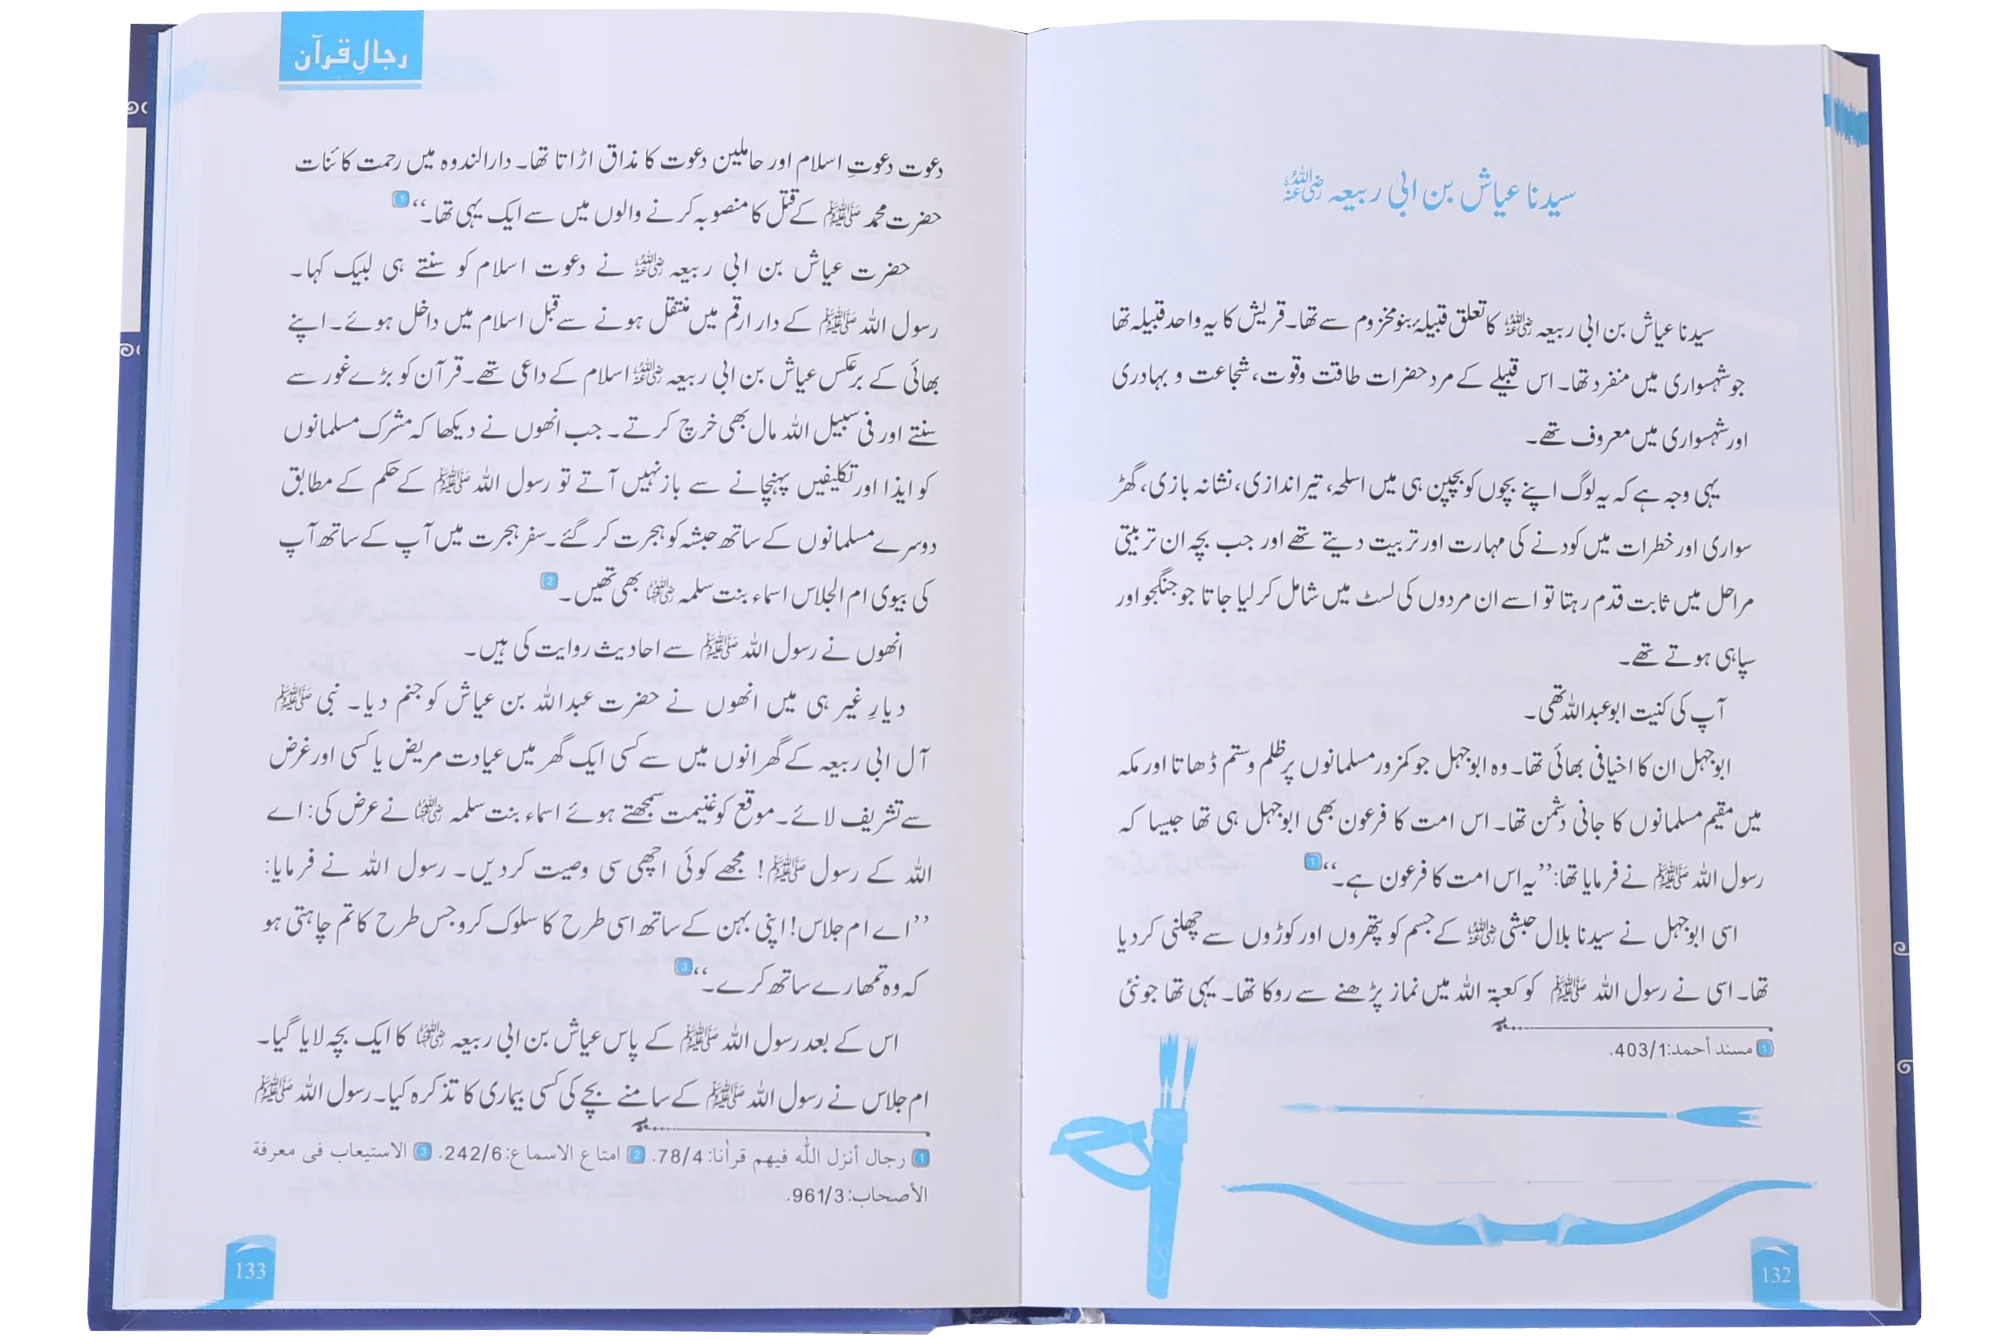 سیدنا عیاش بن ابی ربیعہ رضی اللہ عنہ
سیدنا عیاش بن ابی ربیعہ رضی اللہ عنہ کا تعلق قبیلۂ بنو مخزوم سے تھا۔ قریش کا یہ واحد قبیلہ تھا
جو شہسواری میں منفرد تھا۔ اس قبیلے کے مرد حضرات طاقت وقوت، شجاعت و بہادری
اور شہسواری میں معروف تھے۔
یہی وجہ ہے کہ یہ لوگ اپنے بچوں کو بچپن ہی میں اسلحہ، تیر اندازی، نشانہ بازی، گھڑ
سواری اور خطرات میں کودنے کی مہارت اور تربیت دیتے تھے اور جب بچہ ان تربیتی
مراحل میں ثابت قدم رہتا تو اسے ان مردوں کی لسٹ میں شامل کر لیا جاتا جو جنگجو اور
سپاہی ہوتے تھے۔
آپ کی کنیت ابو عبد اللہ تھی۔
ابو جہل ان کا اخیافی بھائی تھا۔ وہ ابو جہل جو کمزور مسلمانوں پر ظلم و ستم ڈھاتا اور مکہ
میں مقیم مسلمانوں کا جانی دشمن تھا۔ اس امت کا فرعون بھی ابو جہل ہی تھا جیسا کہ
رسول اللہ ﷺ نے فرمایا تھا: ’’یہ اس امت کا فرعون ہے۔‘‘ 1
اسی ابو جہل نے سیدنا بلال حبشی رضی اللہ عنہ کے جسم کو پتھروں اور کوڑوں سے چھلنی کر دیا
تھا۔ اسی نے رسول اللہ ﷺ کو کعبۃ اللہ میں نماز پڑھنے سے روکا تھا۔ یہی تھا جو نئی
1 مسند أحمد: 403/1.
132
رجالِ قرآن
دعوت دعوتِ اسلام اور حاملین دعوت کا مذاق اڑاتا تھا۔ دارالندوہ میں رحمت کائنات
حضرت محمد ﷺ کے قتل کا منصوبہ کرنے والوں میں سے ایک یہی تھا۔‘‘ 1
حضرت عیاش بن ابی ربیعہ رضی اللہ عنہ نے دعوت اسلام کو سنتے ہی لبیک کہا۔
رسول اللہ ﷺ کے دار ارقم میں منتقل ہونے سے قبل اسلام میں داخل ہوئے۔ اپنے
بھائی کے برعکس عیاش بن ابی ربیعہ رضی اللہ عنہ اسلام کے داعی تھے۔ قرآن کو بڑے غور سے
سنتے اور فی سبیل اللہ مال بھی خرچ کرتے۔ جب انھوں نے دیکھا کہ مشرک مسلمانوں
کو ایذا اور تکلیفیں پہنچانے سے باز نہیں آتے تو رسول اللہ ﷺ کے حکم کے مطابق
دوسرے مسلمانوں کے ساتھ حبشہ کو ہجرت کر گئے۔ سفر ہجرت میں آپ کے ساتھ آپ
کی بیوی ام الجلاس اسماء بنت سلمہ رضی اللہ عنہا بھی تھیں۔ 2
انھوں نے رسول اللہ ﷺ سے احادیث روایت کی ہیں۔
دیارِ غیر ہی میں انھوں نے حضرت عبداللہ بن عیاش کو جنم دیا۔ نبی ﷺ
آل ابی ربیعہ کے گھرانوں میں سے کسی ایک گھر میں عیادت مریض یا کسی اور غرض
سے تشریف لائے۔ موقع کو غنیمت سمجھتے ہوئے اسماء بنت سلمہ رضی اللہ عنہا نے عرض کی: اے
اللہ کے رسول ﷺ! مجھے کوئی اچھی سی وصیت کر دیں۔ رسول اللہ نے فرمایا:
’’اے ام جلاس! اپنی بہن کے ساتھ اسی طرح کا سلوک کرو جس طرح کا تم چاہتی ہو
کہ وہ تمھارے ساتھ کرے۔‘‘ 3
اس کے بعد رسول اللہ ﷺ کے پاس عیاش بن ابی ربیعہ رضی اللہ عنہا کا ایک بچہ لایا گیا۔
ام جلاس نے رسول اللہ ﷺ کے سامنے بچے کی کسی بیماری کا تذکرہ کیا۔ رسول اللہ ﷺ
1 رجال أنزل اللّٰه فيهم قراٰنا: 78/4. 2 امتاع الاسماع: 242/6. 3 الاستيعاب فى معرفة
الأصحاب: 961/3.
133